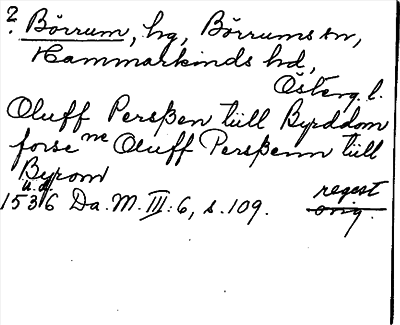 ? Börrum, hg, Börrums sn,
Hammarkinds hd,
Österg. l.
Oluff Persßen tiill Byrddom
forse ne Oluff Perßenn tiill
Byrom
u.d.
1536 Da. M. III: 6, s. 109. regest
orig.